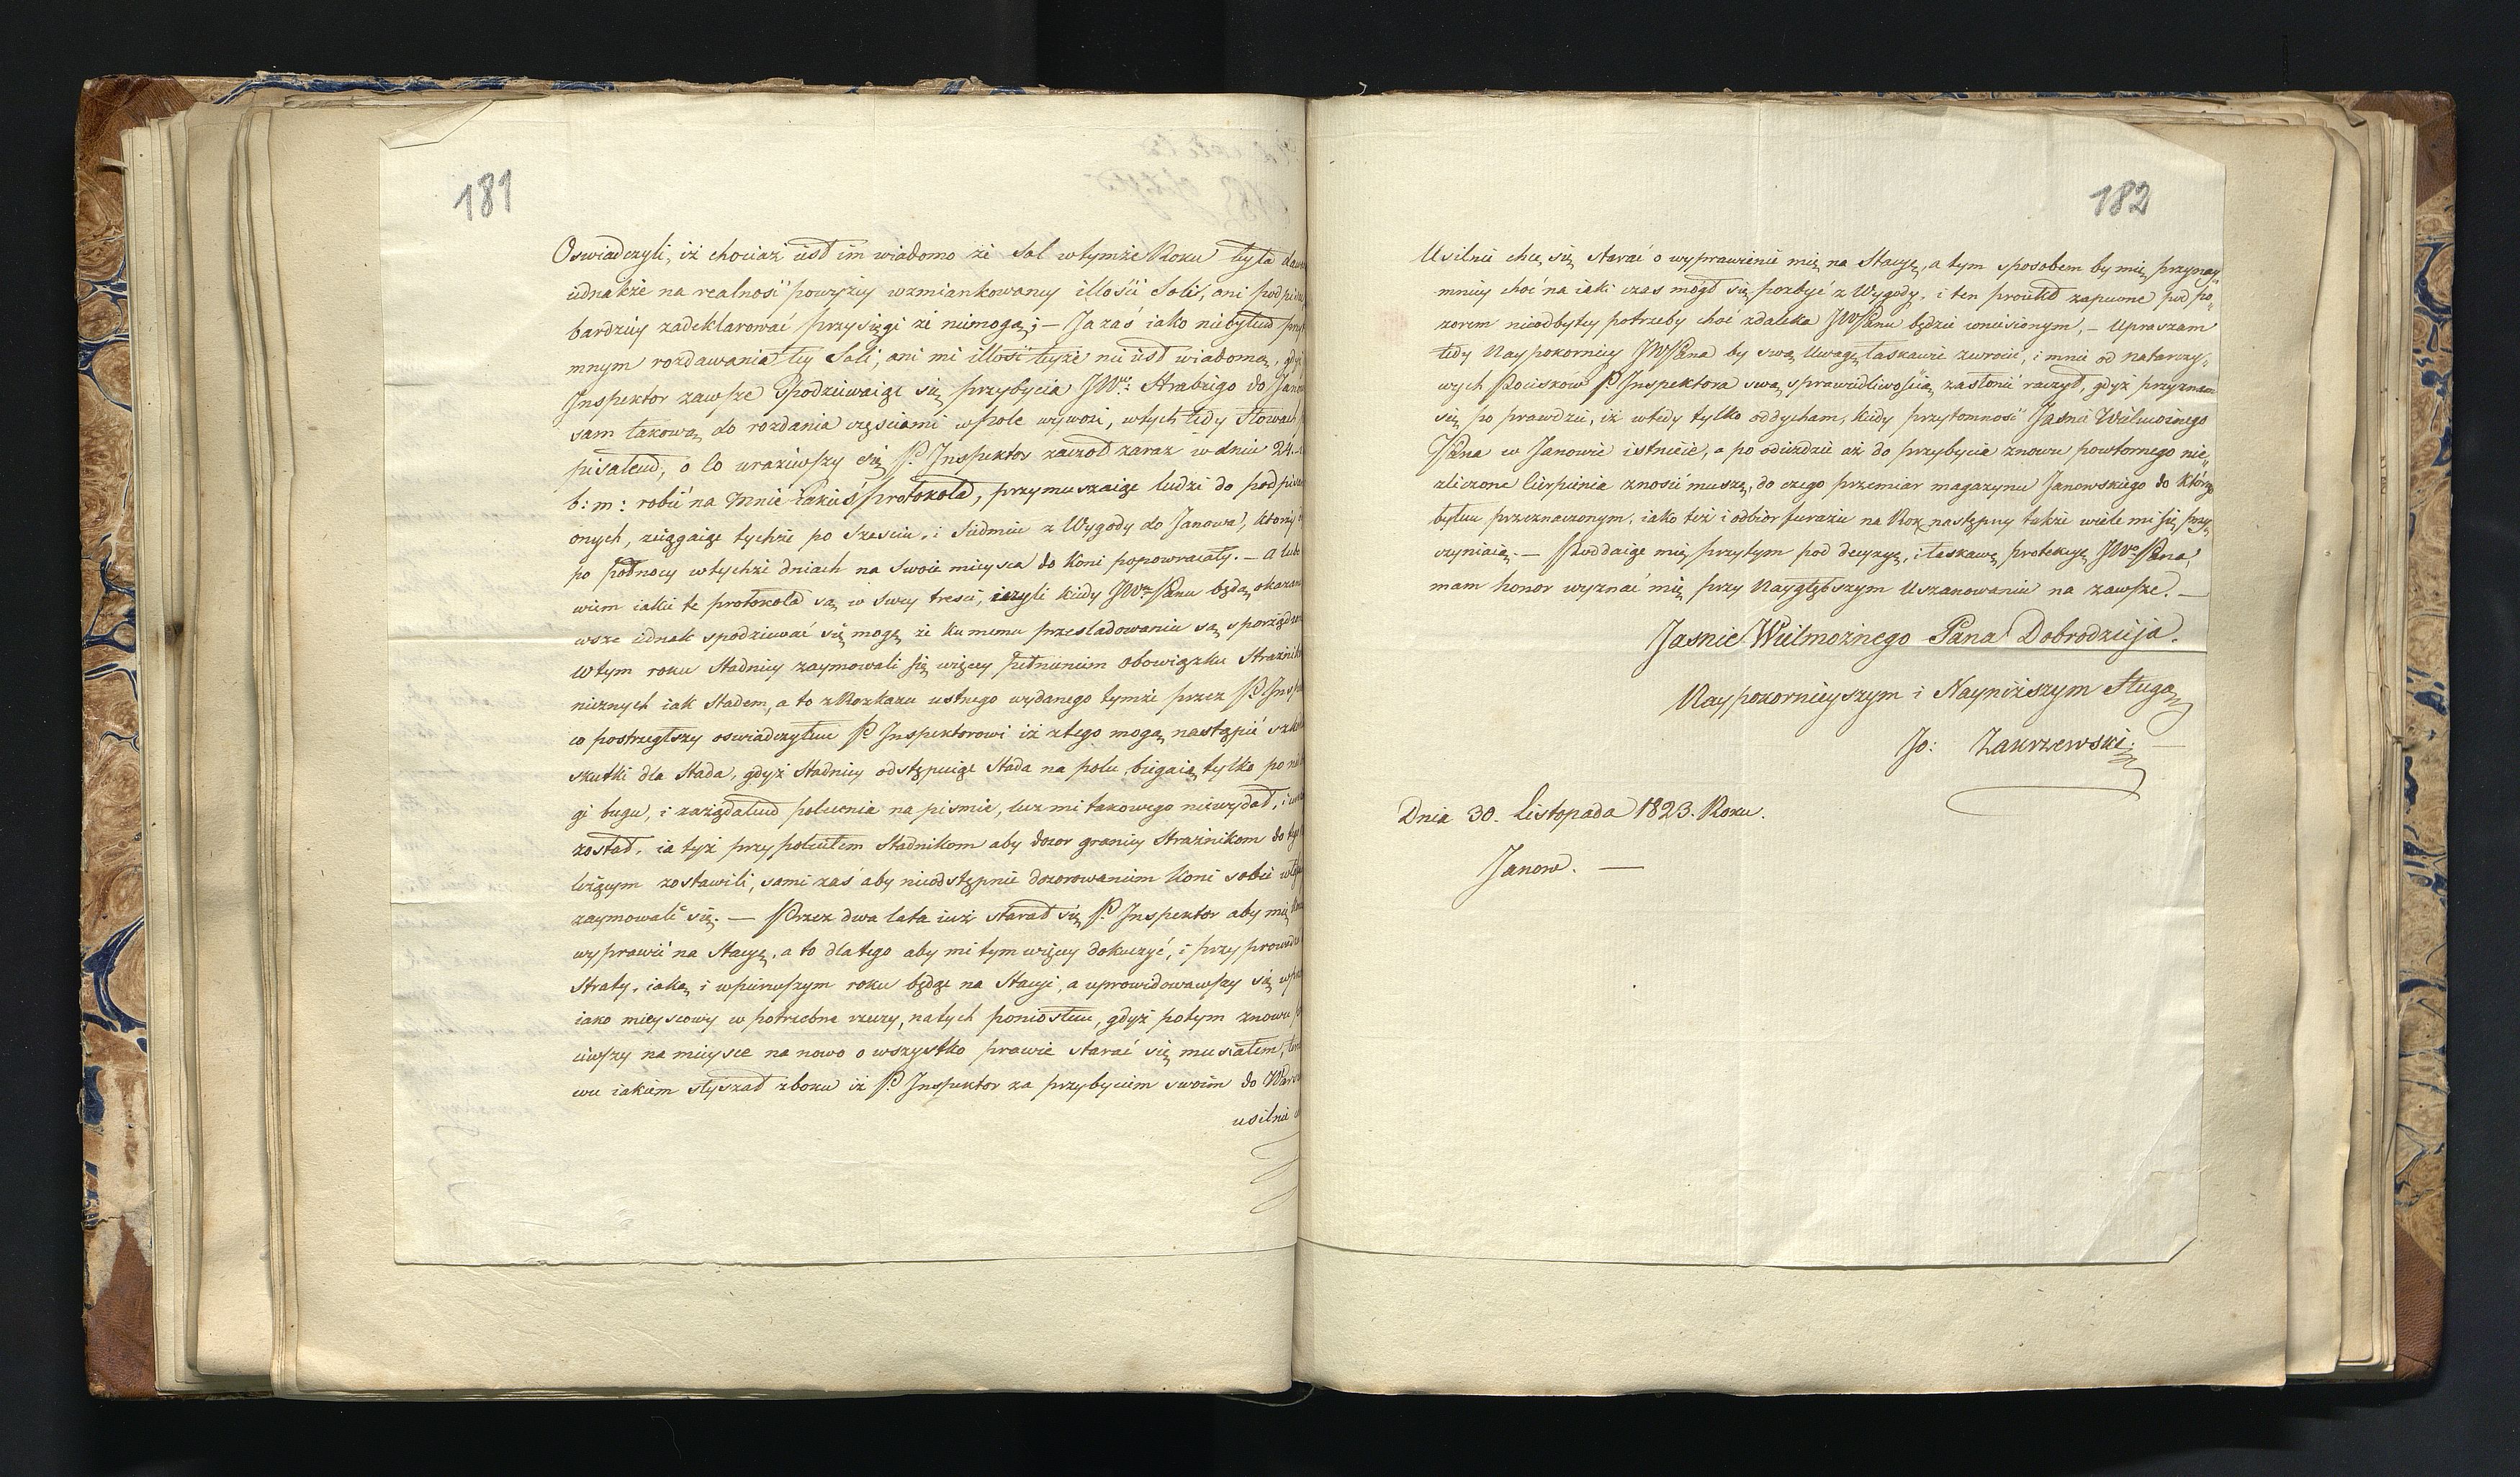 181
Oswiadczyli, iż chociaż iest im wiadomo że Sol wtymże Roku była
iednakże na realność powyższy wzmiankowany illości Soli, ani
bardziey zadeklarować przysięgi że niemogą; — Ja zaś iako niebyłem
mnym rozdawania tey Soli, ani mi illość teyże nie iest wiadomą,
Inspektor zawsze Spodziewaiąc się przybycia JW Hrabiego do
sam takową do rozdania częściami wpole wywozi, wtych tedy Słowach
pisałem, o co uraziwszy się P. Inspektor zaczoł zaraz w dniu 24.
b: m: robić na mnie Jakieś protokoła, przymuszaiąc ludzi do
onych, ściągaiąc tychże po Sześciu, i Siedmiu z Wygody do Janowa,
po północy wtychże dniach na swoie mieysca do Koni popowracały. — a
wiem iakie te protokoła są w swey treści, iczyli kiedy JW Panu będą
wsze iednak spodziewać się mogę że ku memu prześladowaniu są
Wtym roku Stadnicy zaymowali się więcey pełnieniem obowiązku
nicznych iak Stadem, a to z Rozkazu ustnego wydanego tymże przez P.
co postrzegłszy oswiadczyłem P. Inspektorowi iż ztego mogą nastąpić
skutki dla Stada, gdyż Stadnicy odstępuiąc Stada na polu, biegaią tylko
gi bugu, i zażądałem polecenia na pismie, lecz mi takowego niewydał,
został, ia tyż przypoleciłem Stadnikom aby dozor granicy Strażnikom do
leżącym zostawili, sami zaś aby nieodstępnie dozorowaniem Koni sobie
zaymowali się. — Przez dwa lata iuż starał się P. Inspektor aby mię
wyprawić na Stacyę, a to dlatego aby mi tym więcey dokuczyć, i
Straty, iaką i wpierwszym roku będąc na Stacyi, a uprowidowawszy się
iako mieyscowy w potrzebne rzeczy, natych poniosłem, gdyż potym znowu
ciwszy na mieysce na nowo o wszystko prawie starać się musiałem,
wu iakiem słyszał zboku iż P. Inspektor za przybyciem swoim do
usilnie
182
Usilnie chce się starać o wyprawienie mię na Stacyę, a tym sposobem by mię przynay"
mniey choć na iaki czas mógł się pozbyć z Wygody, i ten proiekt zapewne pod po"
zorem nieodbytey potrzeby choć zdaleka JWPanu będzie wniesionym, — Upraszam
tedy Naypokorniey JWPana by swą Uwagę łaskawie zwrocić, i mnie od natarczy"
wych Pocisków P. Inspektora swą sprawiedliwością zasłonić raczył, gdyż przyznam
się po prawdzie, iż wtedy tylko oddycham, kiedy przytomność Jasnie Wielmożnego
Pana w Janowie istnieie, a po odieździe aż do przybycia znowu powtornego nie"
zliczone Cierpienia znosić muszę, do czego przemiar magazynu Janowskiego do którego
byłem przeznaczonym, iako też i odbior furażu na Rok następny także wiele mi się przy"
czyniaią. — Poddaiąc mię przytym pod decyzyę, i łaskawę protekcyę JWo Pana,
mam honor wyznać mię przy Naygłębszym Uszanowaniu na zawsze. —
Jasnie Wielmożnego Pana Dobrodzieja.
Naypokornieyszym i Nayniższym Sługą
Jo: Zakrzewski. —
Dnia 30. Listopada 1823. Roku.
Janow. —